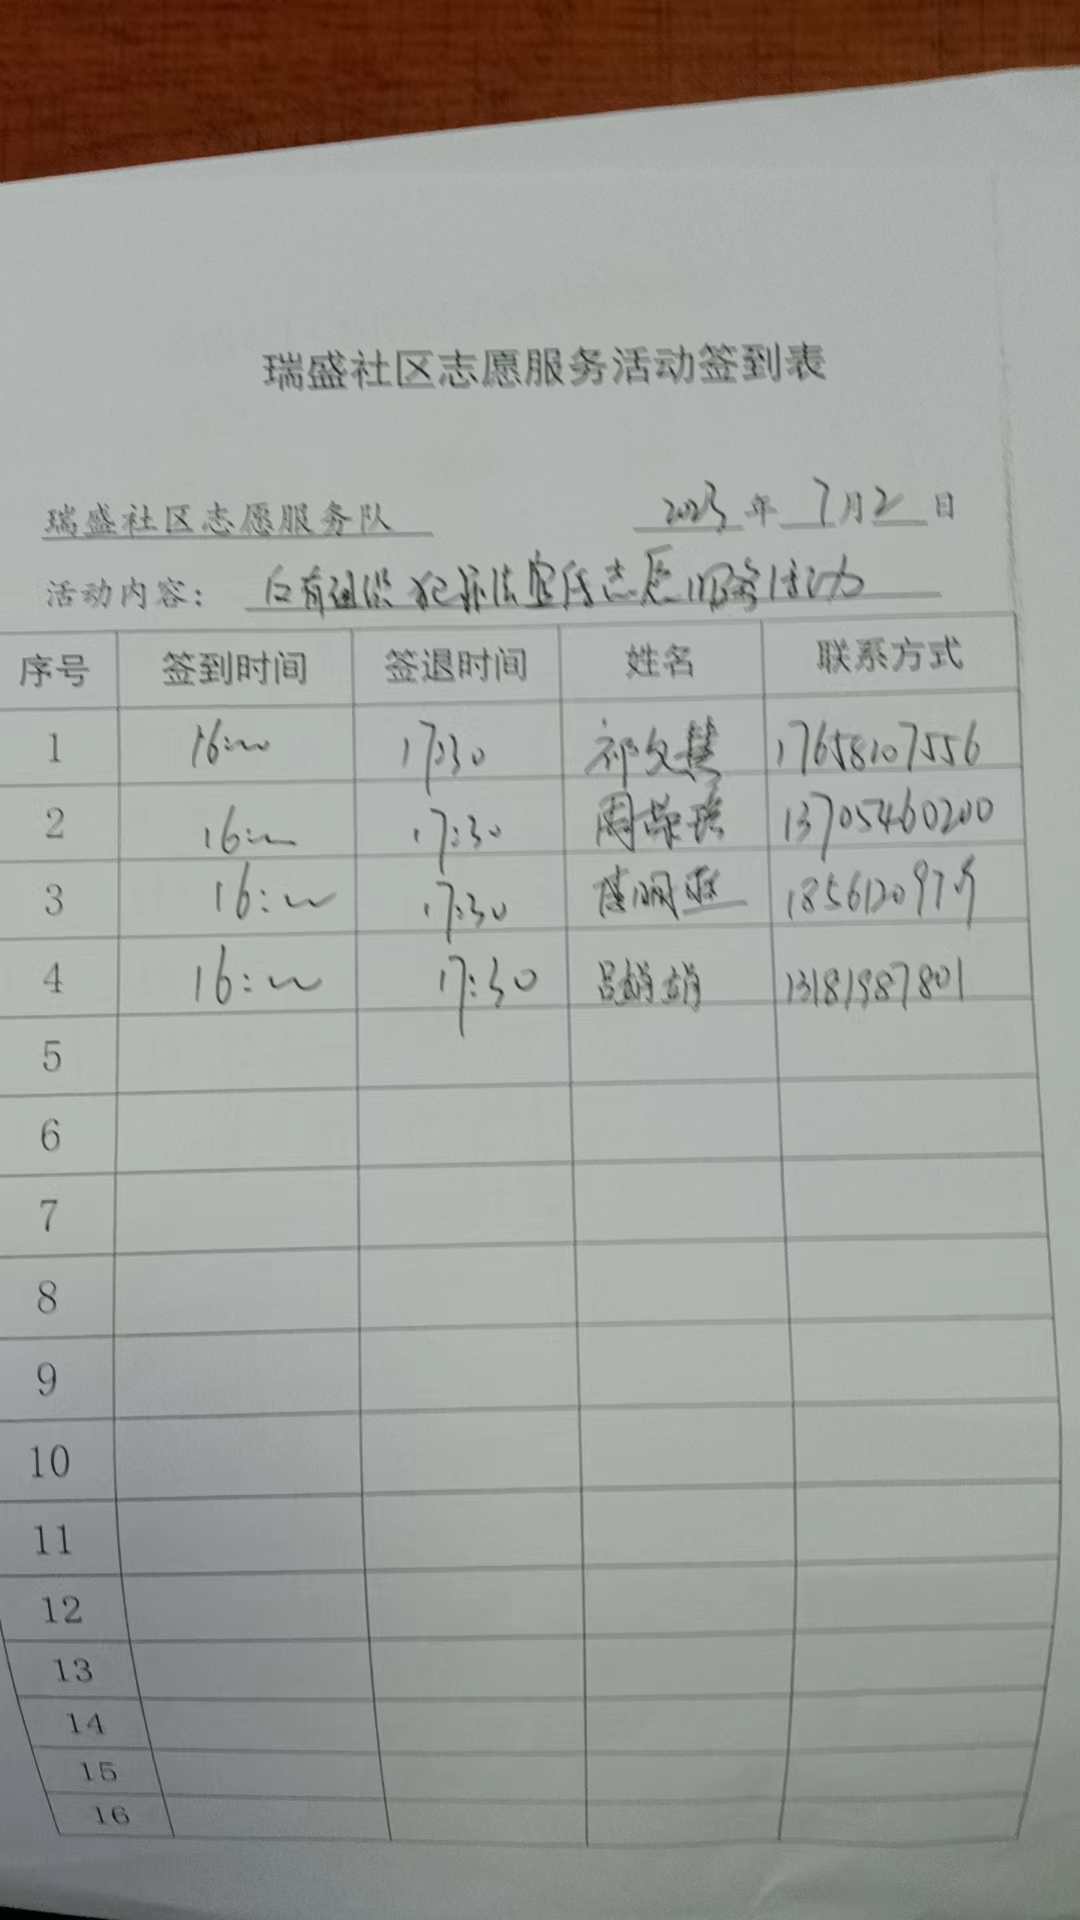 瑞盛社区志愿服务活动签到表
瑞盛社区志愿服务队 2023年7月2日
活动内容: 反有组织犯罪法宣传志愿服务活动
序号 签到时间 签退时间 姓名 联系方式
1 16:00 17:30 祁文慧 17658107556
2 16:00 17:30 周荣 13705460200
3 16:00 17:30
4 16:00 17:30 吕娟娟 13181987801
5
6
7
8
9
10
11
12
13
14
15
16